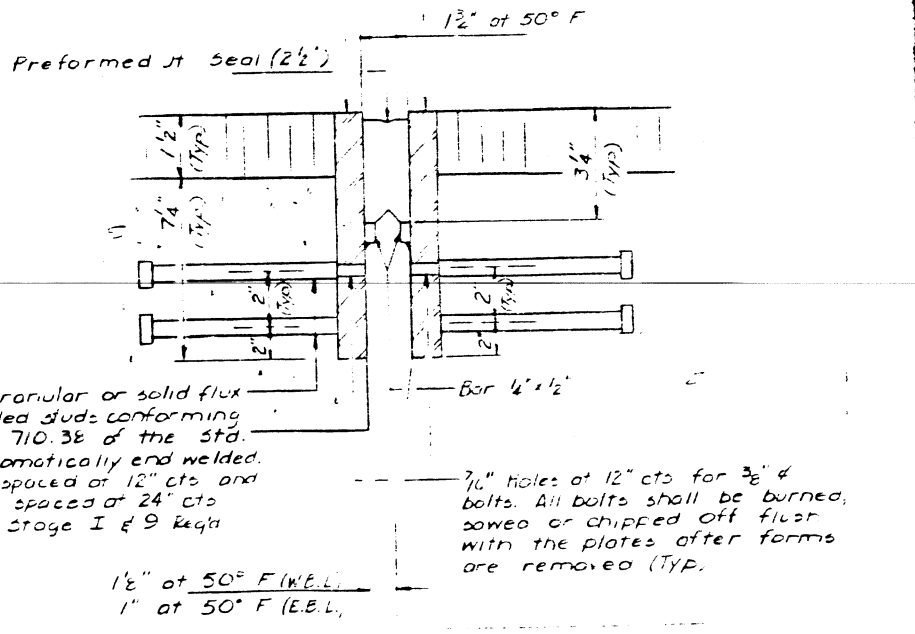 1 3/4" at 50° F
Preformed Jt Seal (2 1/2")
1 1/2"
(Typ)
7 1/4"
(Typ)
3 1/4"
(Typ)
2"
(Typ)
2"
2"
(Typ)
2"
Granular or solid flux
led studs conforming
710.38 of the Std.
omatically end welded.
spaced at 12" cts and
spaced at 24" cts
Stage I & 9 Req'd
Bar 1/4" x 1/2"
7/16" Holes at 12" cts for 3/8" ϕ
bolts. All bolts shall be burned,
sawed or chipped off flush
with the plates after forms
are removed (Typ.
1 1/8" at 50° F (W.B.L.)
1" at 50° F (E.B.L.)